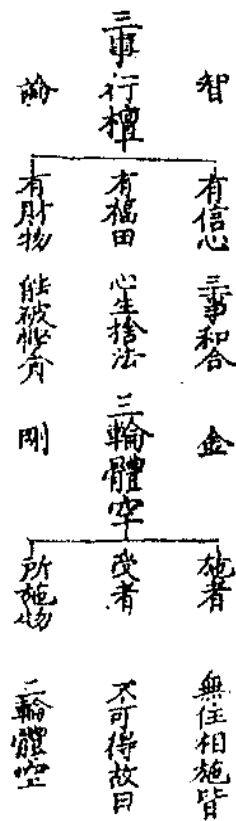 智　有信心　三事和合　金　施者　無住相施皆
三事行檀　有福田　心生捨法　三輪體空　受者　不可得故曰
論　有財物　能破慳貪　剛　所施物　三輪體空